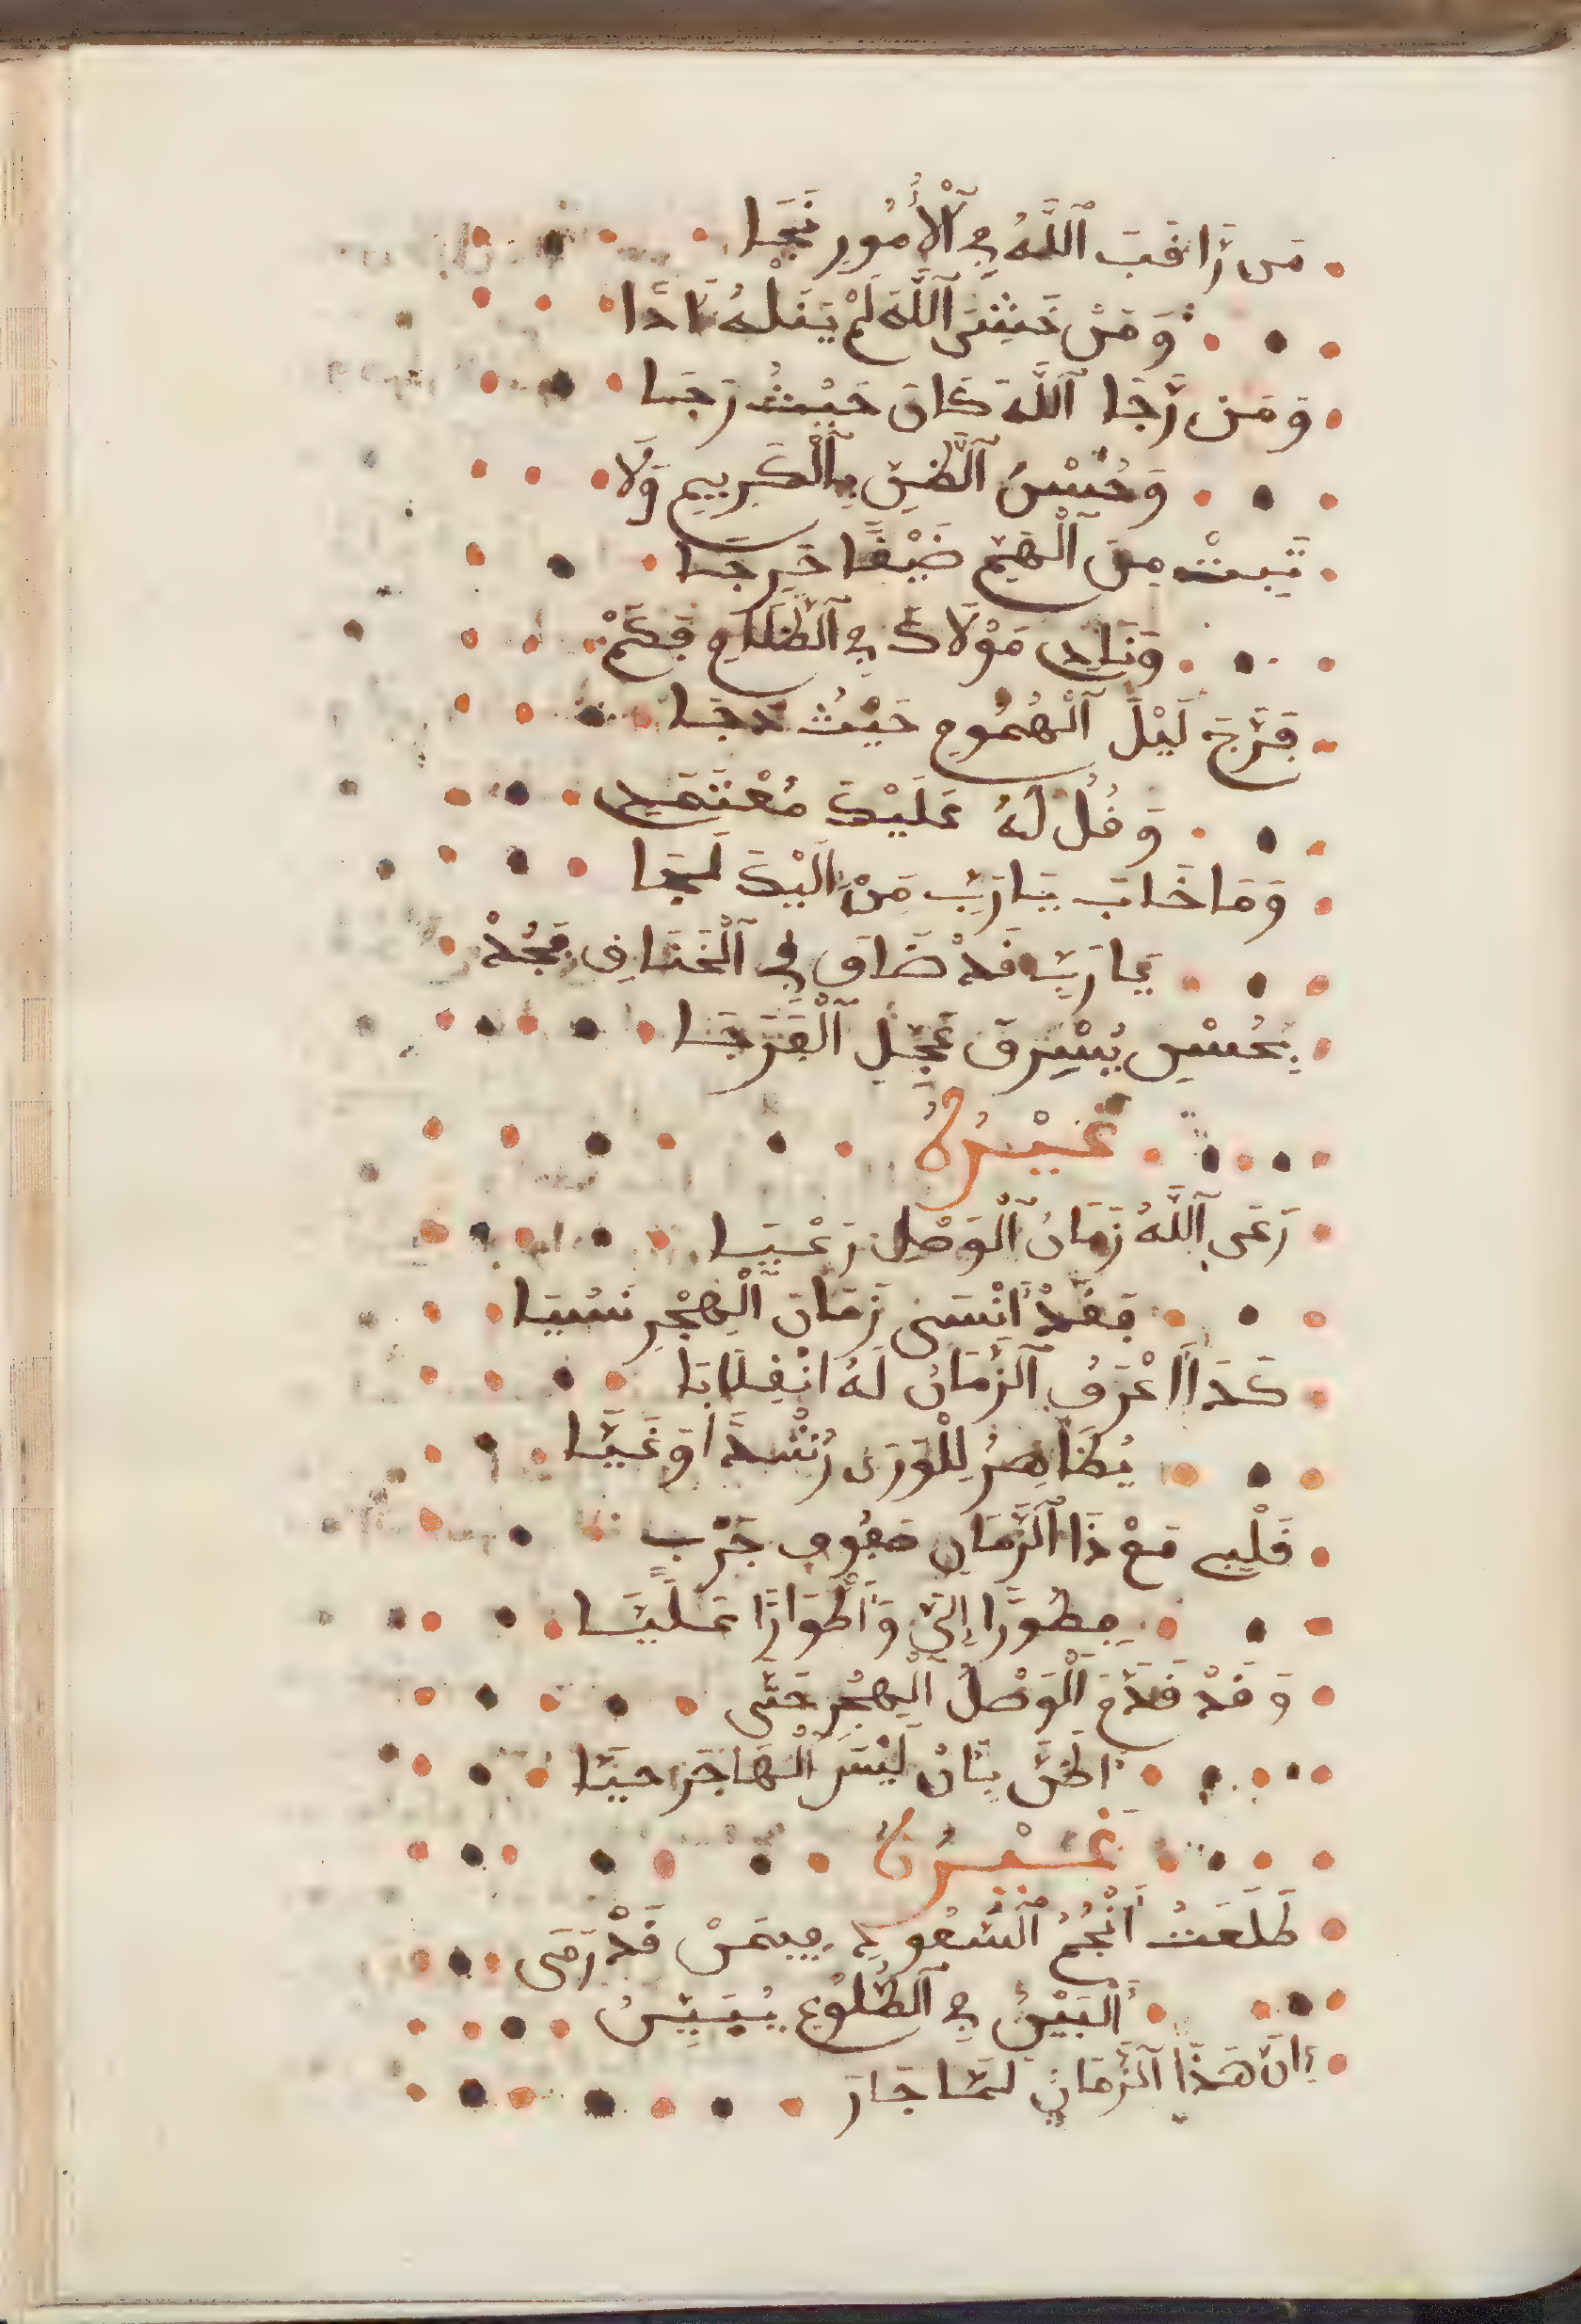 مَن رَّاقَبَ ٱللَّهَ فِي ٱلْأُمُورِ نَجَا
وَمَنْ خَشِىَ ٱللَّهَ لَمْ يَنَلْهُ أَذَا
وَمَن رَّجَا ٱللَّهَ كَانَ حَيْثُ رَجَا
وَحُسْنُ ٱلظَّنِّ بِٱلْكَرِيمِ وَلَا
تَبِيتْ مِنَ ٱلْهَمِّ ضَيِّقًا حَرِجَا
وَنَادِ مَوْلَاكَ فِي ٱلظَّلَامِ فَكَمْ
فَرَّجَ لَيْلَ ٱلْهُمُومِ حَيْثُ دَجَا
وَقُل لَهُ عَلَيْكَ مُعْتَمَدِي
وَمَا خَابَ يَارَبِّ مَنْ إِلَيْكَ لَجَا
يَارَبِّ قَدْ ضَاقَ بِي ٱلْخَنَاقُ فَجُدْ
بِحُسْنِ يُسْرِكَ عَجِّلِ ٱلْفَرَجَا
غَيْرُهُ
رَعَى ٱللَّهُ زَمَانَ ٱلْوَصْلِ رَعْيَا
فَقَدْ أَنْسَى زَمَانَ ٱلْهَجْرِ نَسْيَا
كَذَا أَعْرَفُ ٱلزَّمَانُ لَهُ ٱنْقِلَابَا
يُظَاهِرُ لِلْوَرَى رُشْدًا أَوْ غَيَّا
قَلْبِي مَعْ ذَا ٱلزَّمَانِ صَفُوفِ حَرْبٍ
فَطَوْرًا إِلَيَّ وَأَطْوَارًا عَلَيَّا
وَقَدْ قَدَّمَ ٱلْوَصْلُ ٱلْهَجْرَ حَتَّى
أَظُنَّ بِأَنْ لَيْسَ ٱلْهَاجَرَ حَيَّا
غَيْرُهُ
طَلَعَتْ أَنْجُمُ ٱلسُّعُودِ فِيمَنْ قَدْ رَمَى
ٱلْبَيْنُ فِي ٱلطُّلُوعِ يُبَيِّنُ
إِنَّ هَذَا ٱلزَّمَانَ لَمَّا جَارَ